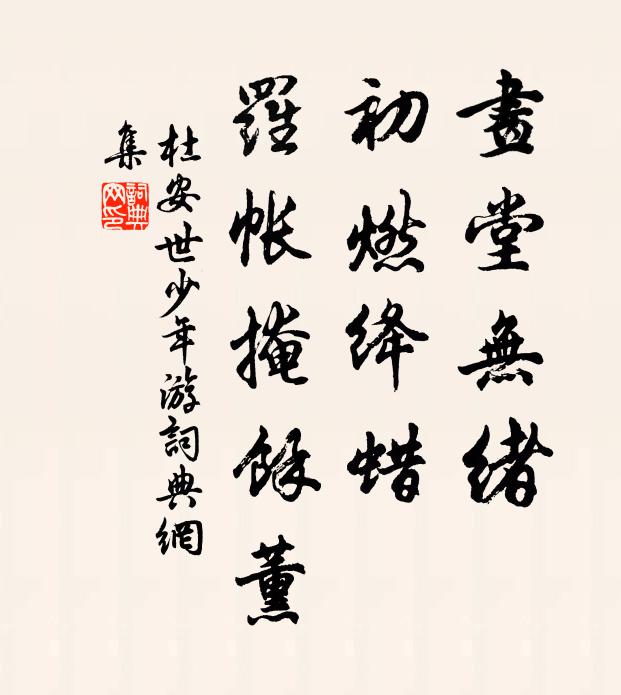 畫堂無緒
初燃絳蜡
羅帳掩餘薰
杜安世少年游詞典網
集
詞典
网印